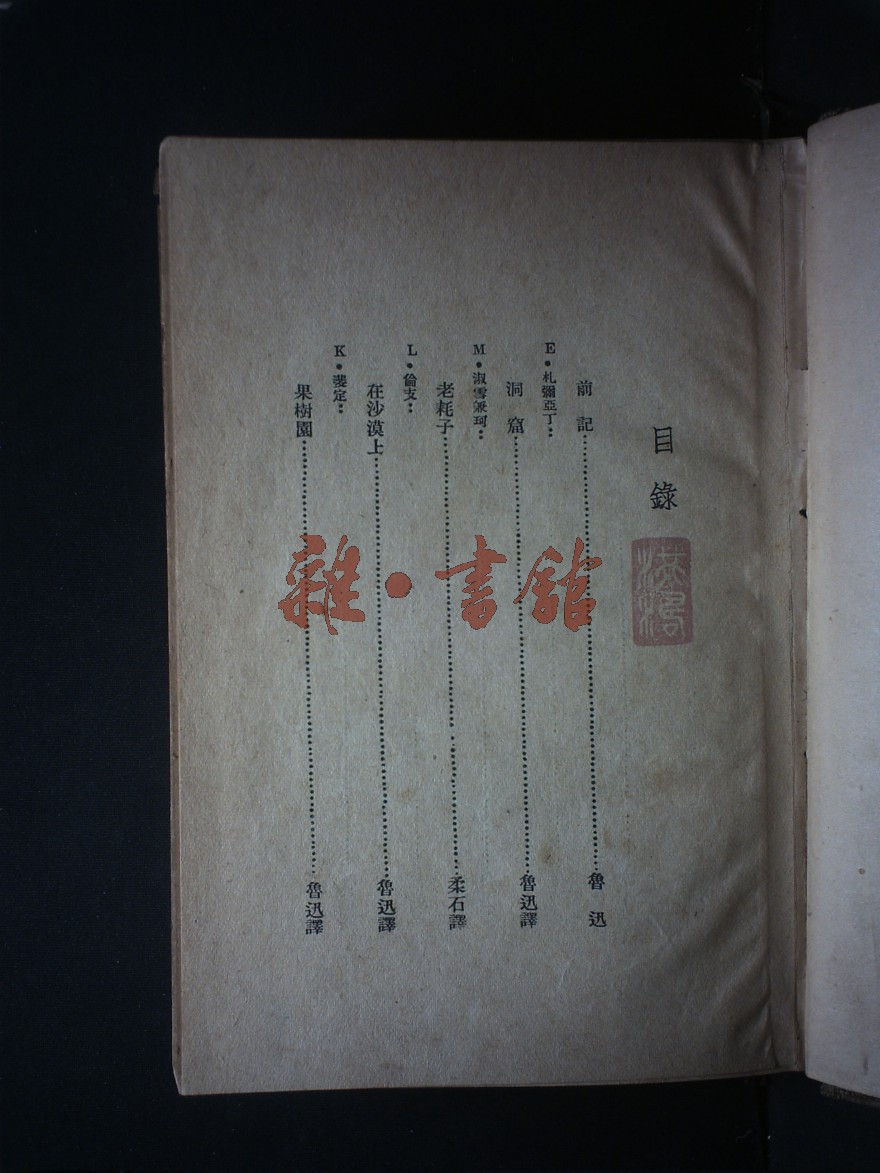 目錄
前記……魯迅
E·札彌亞丁：
洞窟……魯迅譯
M·淑雪兼珂：
老耗子……柔石譯
L·倫支：
在沙漠上……魯迅譯
K·斐定：
果樹園……魯迅譯
雜·書館